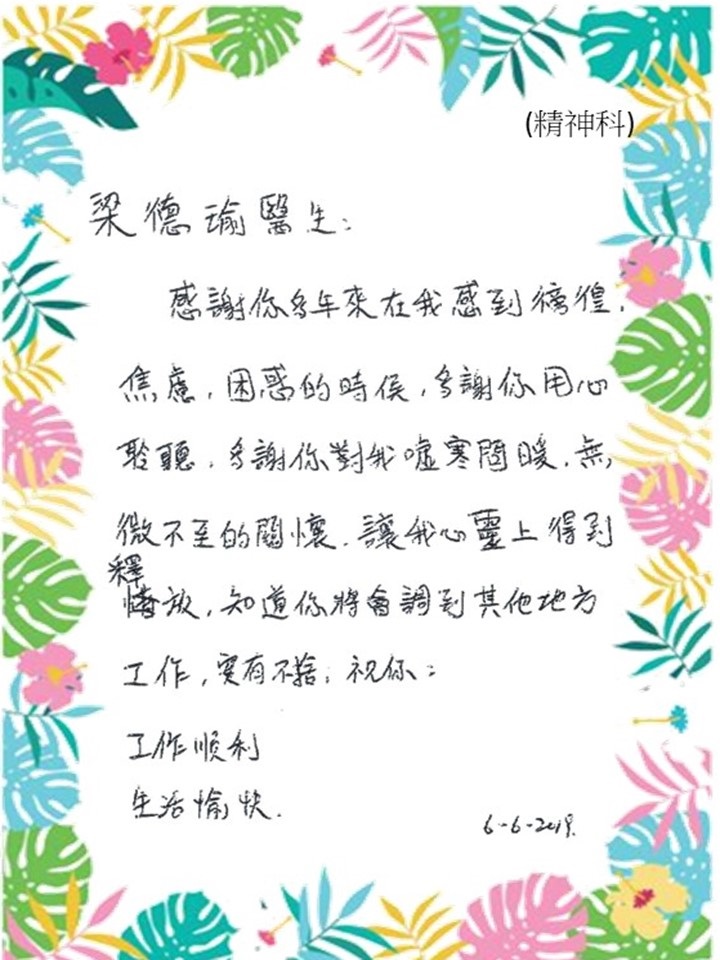 (精神科)
梁德瑜醫生：
感謝你多年來在我感到徬徨，
焦慮，困惑的時候，多謝你用心
聆聽，多謝你對我噓寒問暖，無
微不至的關懷，讓我心靈上得到
釋放，知道你將會調到其他地方
工作，實有不捨；祝你：
工作順利
生活愉快.
6-6-2019.